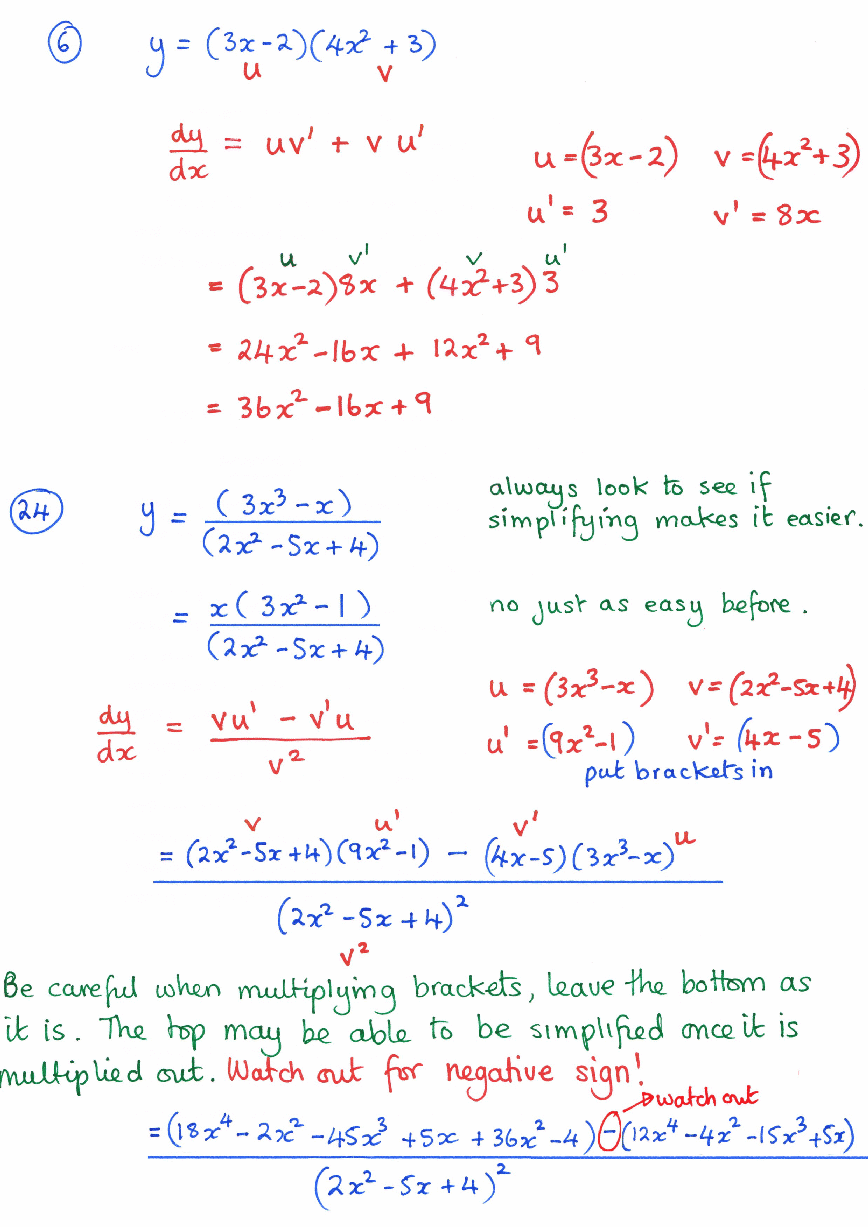 6 y = (3x-2)(4x² + 3)
u v
dy/dx = uv' + v u'
u = (3x-2) v = (4x²+3)
u' = 3 v' = 8x
u v' v u'
= (3x-2)8x + (4x²+3)3
= 24x² -16x + 12x² + 9
= 36x² -16x + 9
24 y = (3x³ - x) / (2x² - 5x + 4)
always look to see if
simplifying makes it easier.
= x(3x² - 1) / (2x² - 5x + 4)
no just as easy before.
u = (3x³-x) v = (2x²-5x+4)
dy/dx = vu' - v'u / v²
u' = (9x²-1) v' = (4x-5)
put brackets in
v u' v' u
= (2x²-5x+4)(9x²-1) - (4x-5)(3x³-x)
(2x² - 5x + 4)²
v²
Be careful when multiplying brackets, leave the bottom as
it is. The top may be able to be simplified once it is
multiplied out. Watch out for negative sign!
watch out
= (18x⁴ - 2x² - 45x³ + 5x + 36x² - 4) - (12x⁴ - 4x² - 15x³ + 5x)
(2x² - 5x + 4)²